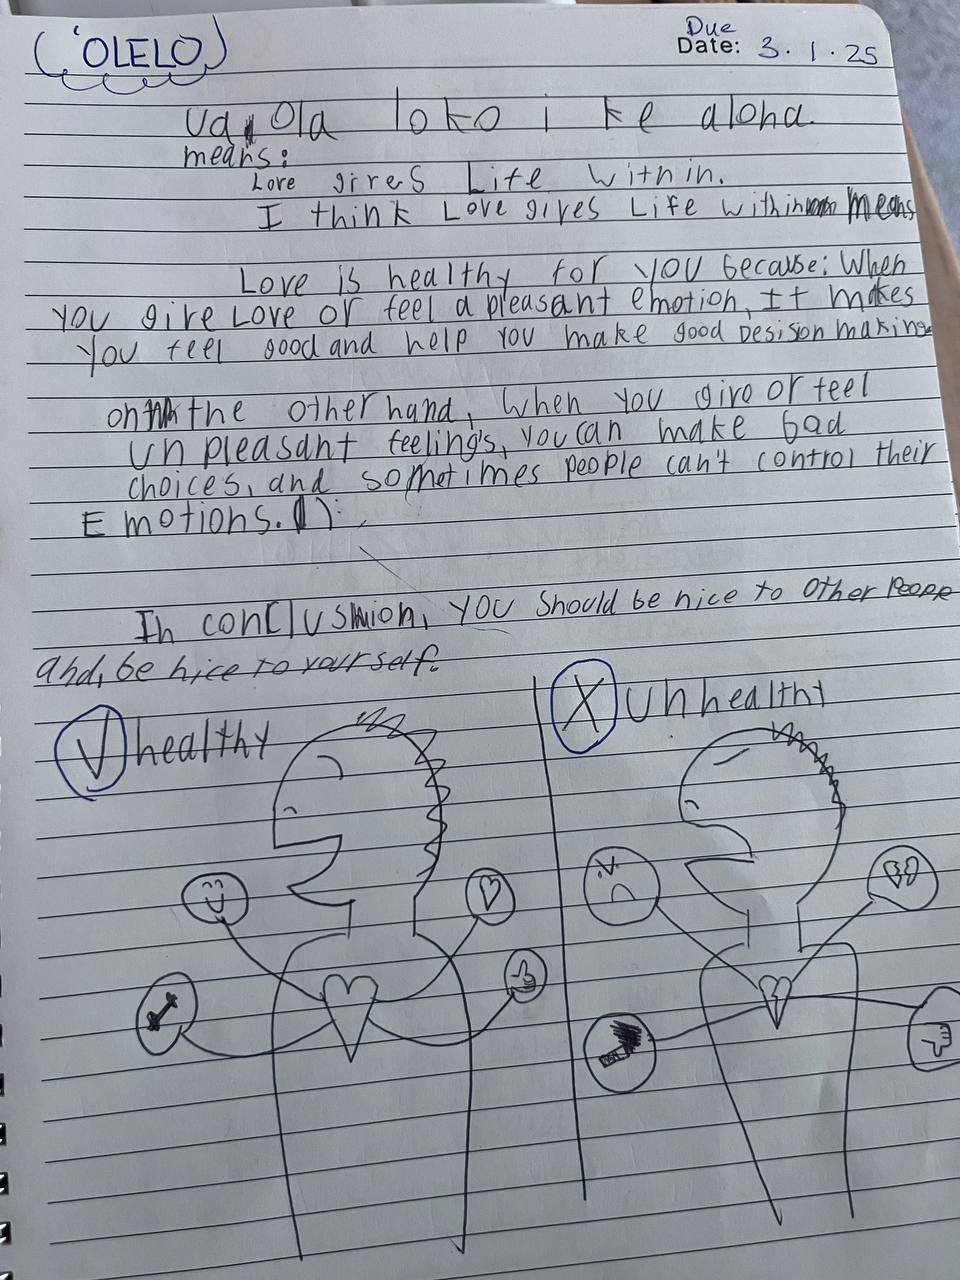 ('OLELO)
Due
Date: 3.1.25
Ua Ola loko i ke aloha.
means:
Love gives Life within.
I think Love gives Life within means
Love is healthy for you because: When
you give Love or feel a pleasant emotion, It makes
you feel good and help you make good Desison making
on the other hand, when you give or feel
unpleasant feeling's, you can make bad
choices, and sometimes people can't control their
Emotions. ):
In conclusion, you should be nice to other
and, be nice to yourself.
V healthy
X Unhealthy